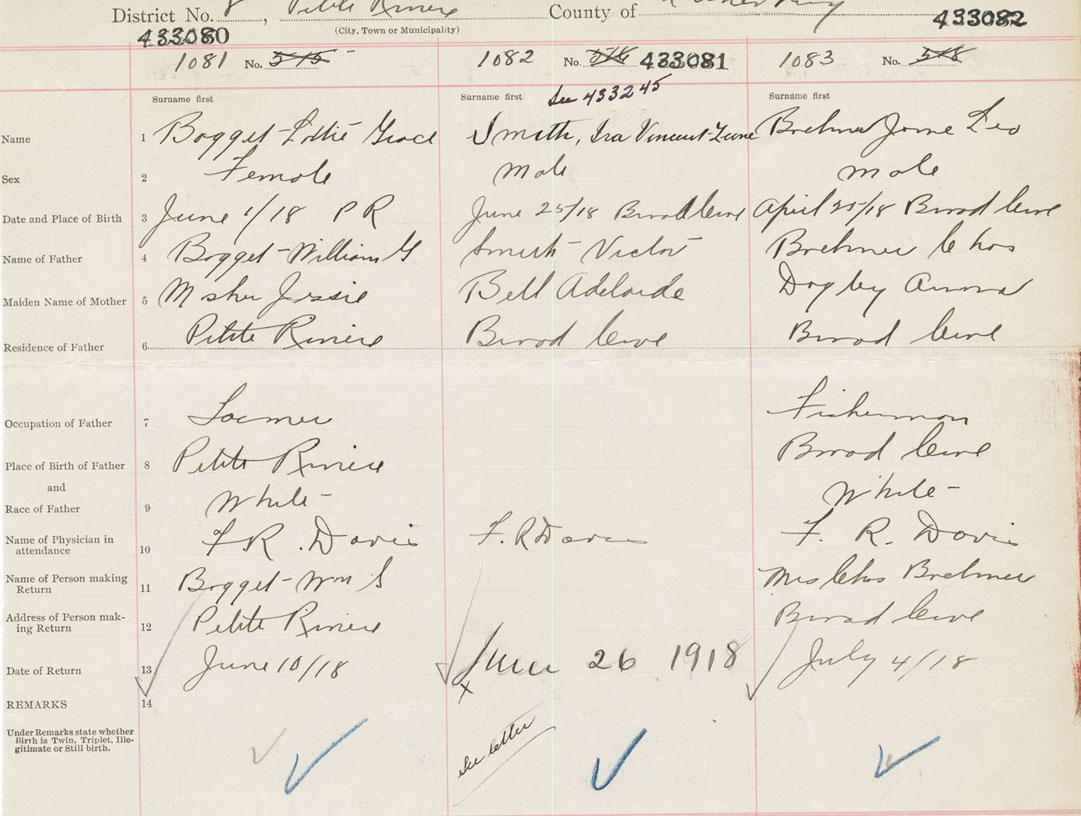 District No. 8, Petite Riviere County of
(City, Town or Municipality)
433080 433082
1081 No. 515 1082 No. 433081 1083 No. 518
Surname first Surname first See 433245 Surname first
Name 1 Bogget Lottie Grace Smith, Ira Vincent Leo
Sex 2 Female Male Male
Date and Place of Birth 3 June 1/18 P R June 25/18 Broad Cove April 25/18 Broad Cove
Name of Father 4 Bogget William G Smith Victor Brehmer Chas
Maiden Name of Mother 5 Jessie Bell Adelaide
Residence of Father 6 Petite Riviere Broad Cove Broad Cove
Occupation of Father 7 Fisherman
Place of Birth of Father 8 Petite Riviere Broad Cove
and
Race of Father 9 White White
Name of Physician in
attendance 10 F R. Davis F. R Davis F. R. Davis
Name of Person making
Return 11 Bogget Wm Mrs Chas Brehmer
Address of Person mak-
ing Return 12 Petite Riviere Broad Cove
Date of Return 13 June 10/18 June 26 1918 July 4/18
REMARKS 14 x
Under Remarks state whether
Birth is Twin, Triplet, Ille-
gitimate or Still birth.
See letter